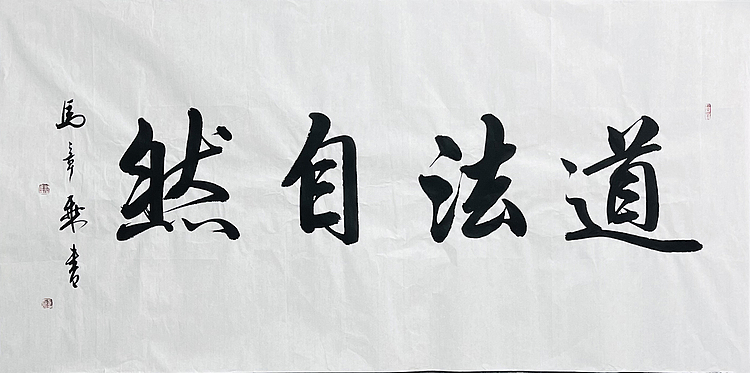 道法自然
馬章乘書